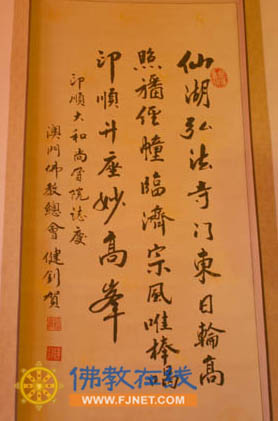 仙湖弘法寺门東日輪高
照旛經幢臨濟宗風唯棒喝
印順升座妙高峯
印順大和尚晉院誌慶
澳門佛教總會健釗賀
佛教在线
WWW.FJNET.COM